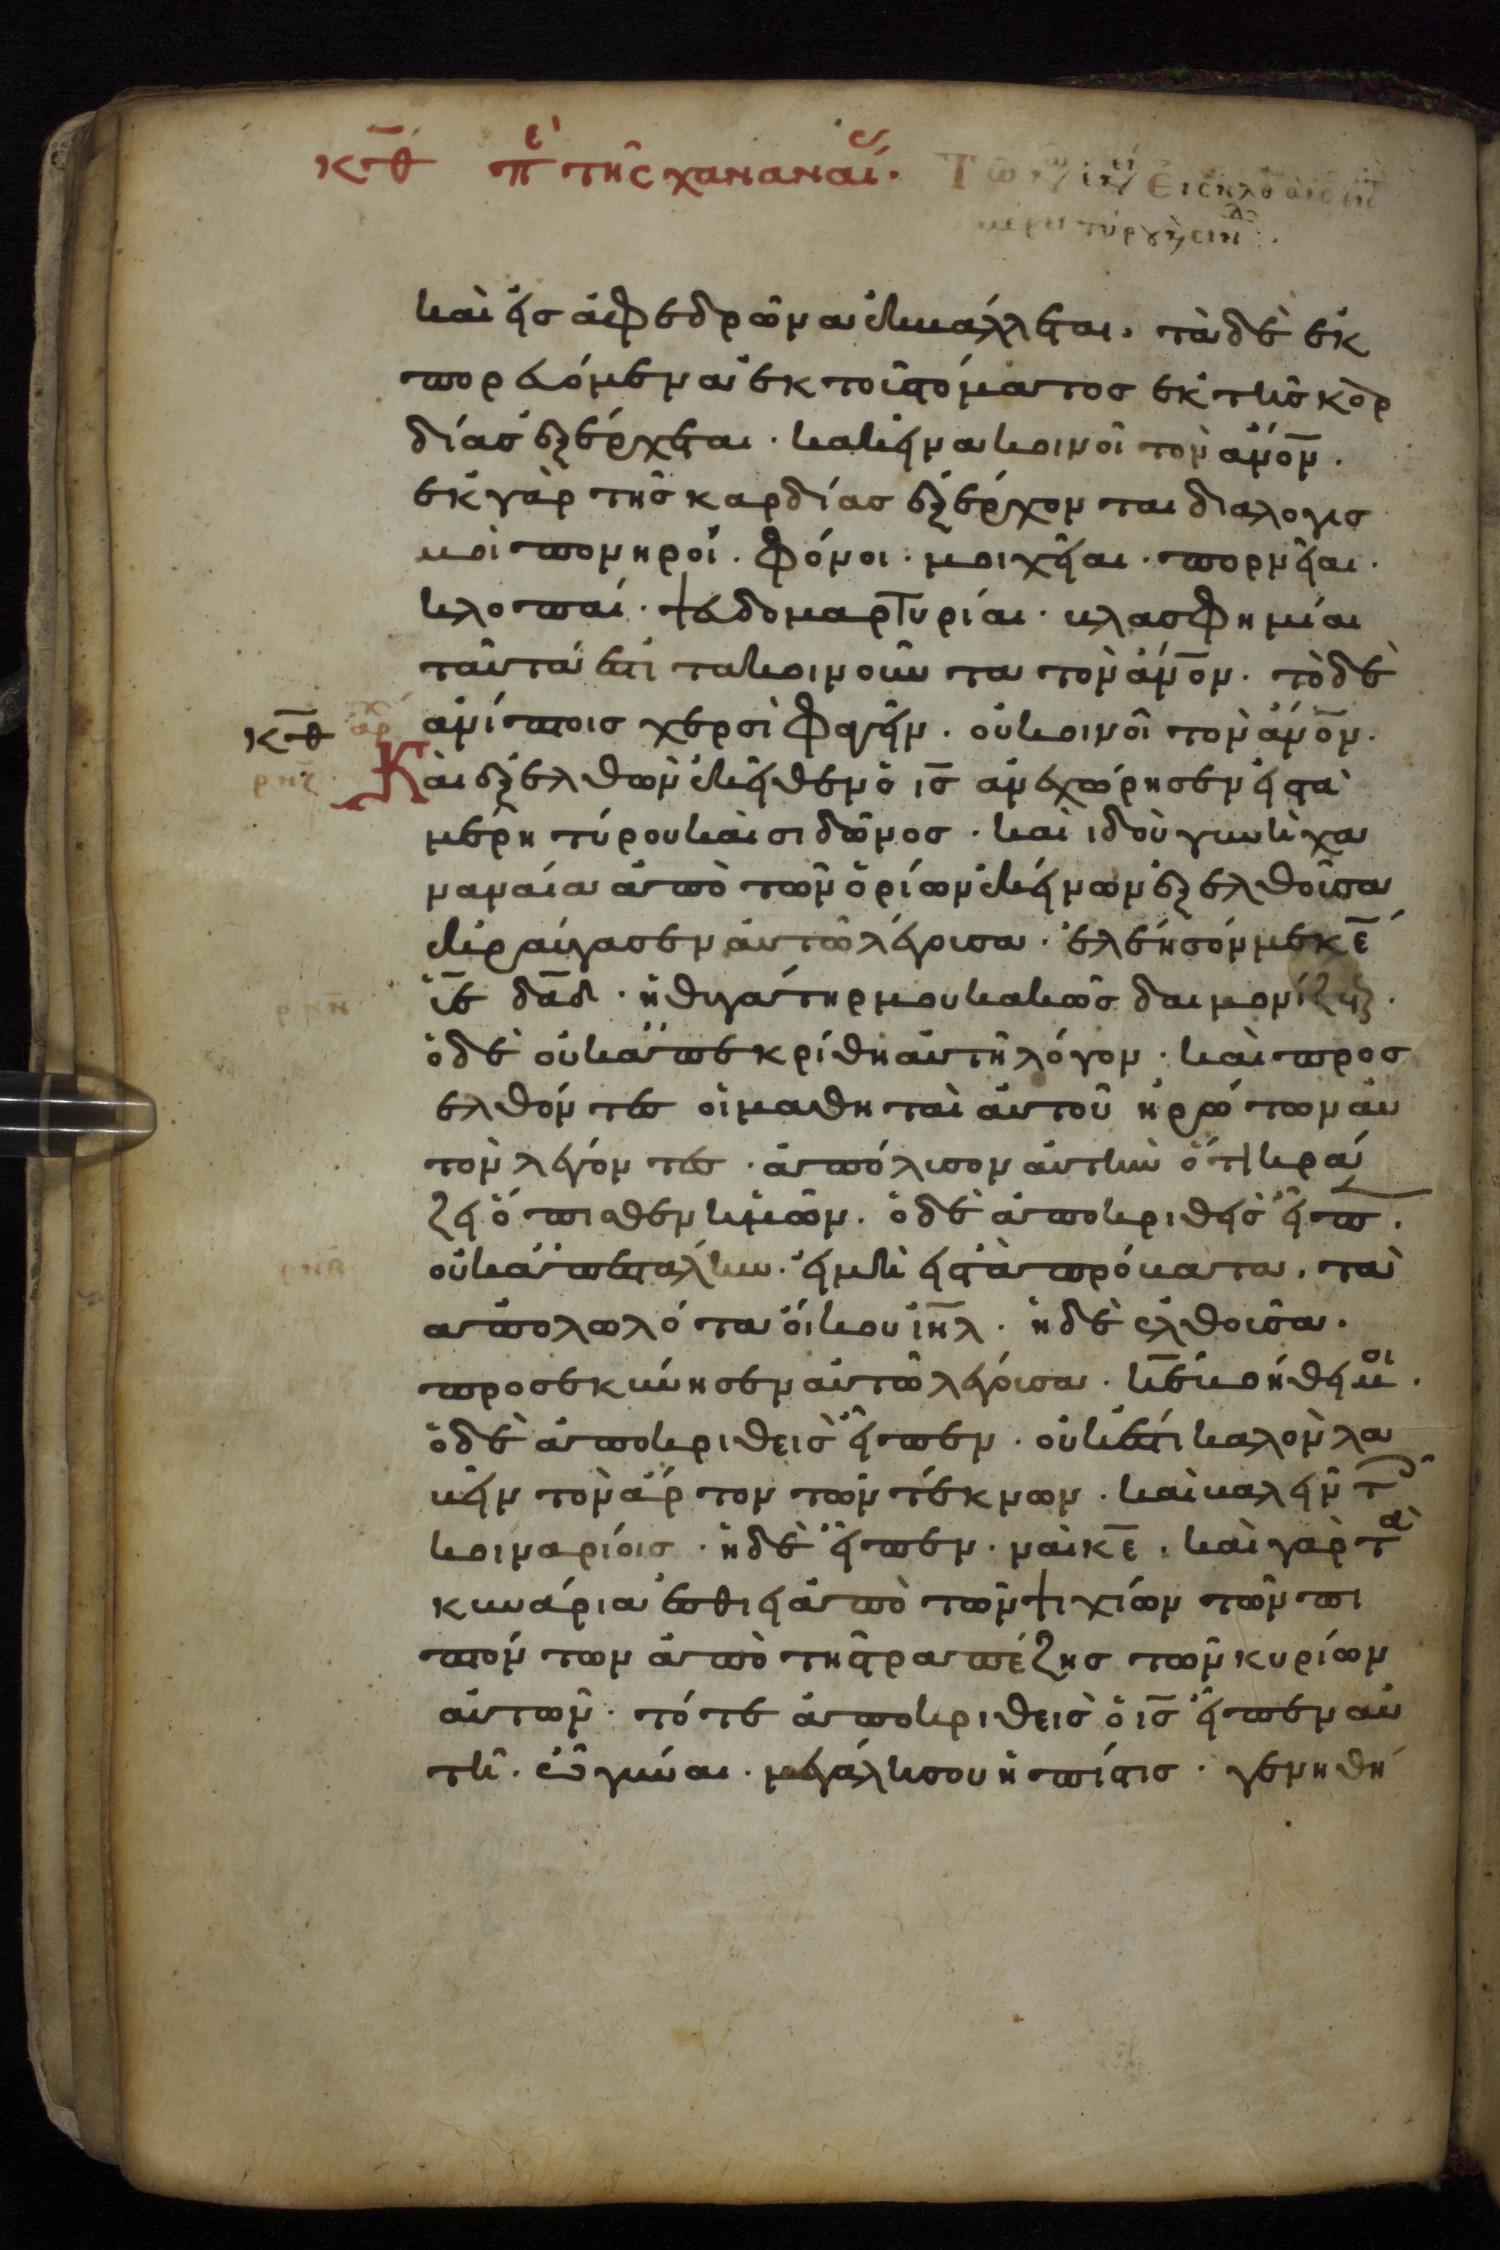 κ̅θ̅ πὲ τῆς χαναναί(ας).
Τῶ
καὶ εἰς ἀφεδρῶνα ἐκβάλλεται. τὰ δὲ ἐκ
πορευόμενα ἐκ τοῦ στόματος ἐκ τῆς καρ
δίας ἐξέρχεται. κἀκεῖνα κοινοῖ τὸν ἄν̅ο̅ν̅.
ἐκ γὰρ τῆς καρδίας ἐξέρχονται διαλογισ
μοὶ πονηροί. φόνοι. μοιχεῖαι. πορνεῖαι.
κλοπαί. ψευδομαρτυρίαι. βλασφημίαι
ταῦτά ἐστι τὰ κοινοῦντα τὸν ἄν̅ο̅ν̅. τὸ δὲ
κ̅θ̅ ἀρχ ἀνίπτοις χερσὶ φαγεῖν. οὐ κοινοῖ τὸν ἄν̅ο̅ν̅.
Καὶ ἐξελθὼν ἐκεῖθεν ὁ ι̅ς̅ ἀνεχώρησεν εἰς τὰ
μέρη τύρου καὶ σιδῶνος. καὶ ἰδοὺ γυνὴ χα
ναναία ἀπὸ τῶν ὁρίων ἐκείνων ἐξελθοῦσα
ἐκραύγασεν αὐτῶ λέγουσα. ἐλέησόν με κ̅ε̅
υ̅ἱ̅ὲ̅ δ̅α̅δ̅. ἡ θυγάτηρ μου κακῶς δαιμονίζεται.
ὁ δὲ οὐκ ἀπεκρίθη αὐτῆ λόγον. καὶ προσ
ελθόντες οἱ μαθηταὶ αὐτοῦ ἠρώτων αὐ
τὸν λέγοντες. ἀπόλυσον αὐτὴν ὅτι κρά
ζει ὄπισθεν ἡμῶν. ὁ δὲ ἀποκριθεὶς εἶπ.
οὐκ ἀπεστάλην. εἰ μὴ εἰς τὰ πρόβατα. τὰ
ἀπολωλότα οἴκου ἰ̅η̅λ̅. ἡ δὲ ἐλθοῦσα.
προσεκύνησεν αὐτῶ λέγουσα. κ̅ε̅ βοήθει μοι.
ὁ δὲ ἀποκριθεὶς εἶπεν. οὐκ ἔστι καλὸν λα
βεῖν τὸν ἄρτον τῶν τέκνων. καὶ βαλεῖν τ(οῖς)
κοιναρίοις. ἡ δὲ εἶπεν. ναὶ κ̅ε̅. καὶ γὰρ τὰ
κυνάρια ἐσθίει ἀπὸ τῶν ψιχίων τῶν πι
πτόντων ἀπὸ τῆς τραπέζης τῶν κυρίων
αὐτῶν. τότε ἀποκριθεὶς ὁ ι̅ς̅ εἶπεν αὐ
τῆ. ὦ γύναι. μεγάλη σου ἡ πίστις. γενηθή